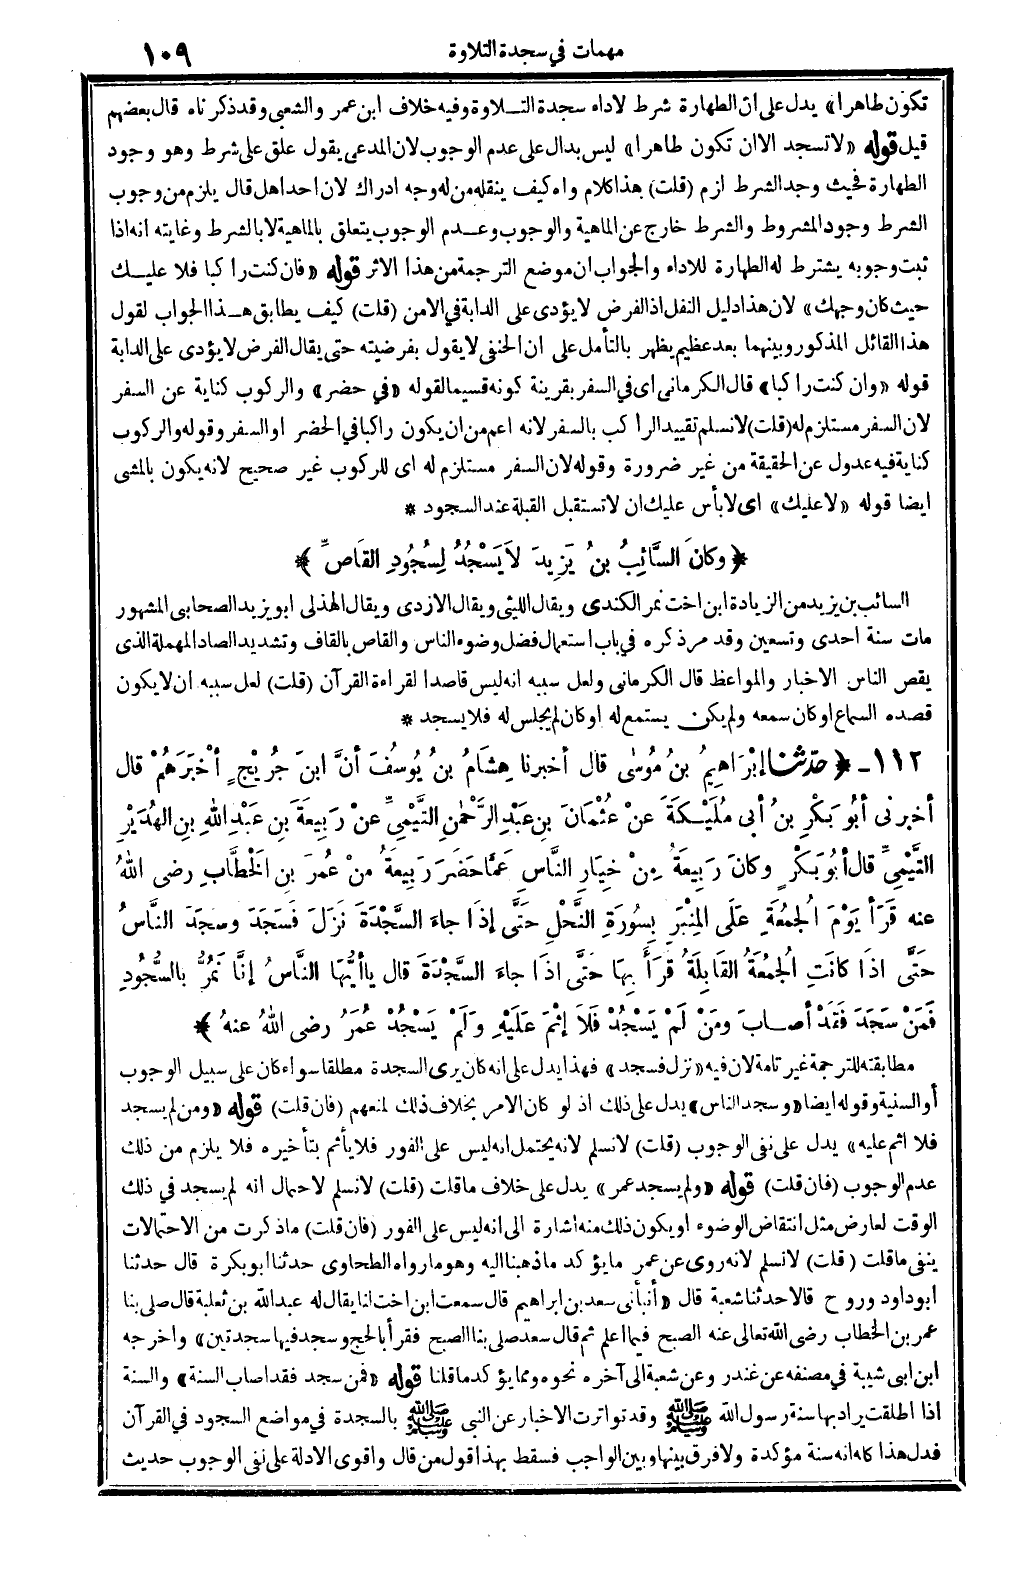 مهمات في سجدة التلاوة ١٠٩
تكون طاهرا» يدل على ان الطهارة شرط لاداء سجدة التلاوة وفيه خلاف ابن عمر والشعبي وقد ذكرناه قال بعضهم
قيل قوله «لا تسجد الا ان تكون طاهرا» ليس بدال على عدم الوجوب لان المدعى يقول علق على شرط وهو وجود
الطهارة فحيث وجد الشرط لزم (قلت) هذا كلام واه كيف ينقله من له وجه ادراك لان احدا هل قال يلزم من وجوب
الشرط وجود المشروط والشرط خارج عن الماهية والوجوب وعدم الوجوب يتعلق بالماهية لا بالشرط وغايته انه اذا
ثبت وجوبه يشترط له الطهارة للاداء والجواب ان موضع الترجمة من هذا الاثر قوله «فان كنت راكبا فلا عليك
حيث كان وجهك» لان هذا دليل النفل اذ الفرض لا يؤدى على الدابة في الامن (قلت) كيف يطابق هذا الجواب لقول
هذا القائل المذكور وبينهما بعد عظيم يظهر بالتأمل على ان الحنفي لا يقول بفرضيته حتى يقال الفرض لا يؤدى على الدابة
قوله «وان كنت راكبا» قال الكرماني اى في السفر بقرينة كونه قسيما لقوله «في حضر» والركوب كناية عن السفر
لان السفر مستلزم له (قلت) لا نسلم تقييد الراكب بالسفر لانه اعم من ان يكون راكبا في الحضر او السفر وقوله والركوب
كناية فيه عدول عن الحقيقة من غير ضرورة وقوله لان السفر مستلزم له اى للركوب غير صحيح لانه يكون بالمشى
ايضا قوله «لا عليك» اى لا بأس عليك ان لا تستقبل القبلة عند السجود *
﴿ وكَانَ السَّائِبُ بنُ يَزِيدَ لاَ يَسْجُدُ لِسُجُودِ القَاصِّ ﴾
السائب بن يزيد من الزيادة ابن اخت نمر الكندى ويقال الليثي ويقال الازدى ويقال الهذلى ابو يزيد الصحابي المشهور
مات سنة احدى وتسعين وقد مر ذكره في باب استعمال فضل وضوء الناس والقاص بالقاف وتشديد الصاد المهملة الذى
يقص الناس الاخبار والمواعظ قال الكرماني ولعل سببه انه ليس قاصدا لقراءة القرآن (قلت) لعل سببه ان لا يكون
قصده السماع او كان سمعه ولم يكن يستمع له او كان لم يجلس له فلا يسجد *
١١٢ ـ ﴿ حدّثنا إبْرَاهِيمُ بنُ مُوسٰى قال أخبرنا هِشَامُ بنُ يُوسُفَ أنَّ ابنَ جُرَيْجٍ أخْبَرَهُمْ قال
أخبرني أبُو بَكْرِ بنُ أبى مُلَيْكَةَ عَنْ عُثْمَانَ بنِ عَبْدِ الرَّحْمٰنِ التَّيْمِيِّ عنْ رَبِيعَةَ بنِ عَبْدِ اللهِ بنِ الهُدَيْرِ
التَّيْمِيِّ قال أبُو بَكْرٍ وكانَ رَبِيعَةُ مِنْ خِيَارِ النَّاسِ عَمَّا حَضَرَ رَبِيعَةُ منْ عُمَرَ بنِ الخَطَّابِ رضى اللهُ
عنه قَرَأ يَوْمَ الجُمُعَةِ عَلَى المِنْبَرِ بِسُورَةِ النَّحْلِ حَتَّى إذَا جاءَ السَّجْدَةَ نَزَلَ فَسَجَدَ وسجَدَ النَّاسُ
حَتَّى اذَا كانَتِ الجُمُعَةُ القَابِلَةُ قَرَأ بِهَا حَتَّى اذَا جاءَ السَّجْدَةَ قال ياأيُّهَا النَّاسُ إنَّا نَمُرُّ بالسُّجُودِ
فَمَنْ سَجَدَ فَقَدْ أصَابَ ومَنْ لَمْ يَسْجُدْ فَلاَ إثْمَ عَلَيْهِ ولَمْ يَسْجُدْ عُمَرُ رضى اللهُ عنهُ ﴾
مطابقته للترجمة غير تامة لان فيه «نزل فسجد» فهذا يدل على انه كان يرى السجدة مطلقا سواء كان على سبيل الوجوب
أو السنية وقوله ايضا «وسجد الناس» يدل على ذلك اذ لو كان الامر بخلاف ذلك لمنعهم (فان قلت) قوله «ومن لم يسجد
فلا اثم عليه» يدل على نفى الوجوب (قلت) لا نسلم لانه يحتمل انه ليس على الفور فلا يأثم بتأخيره فلا يلزم من ذلك
عدم الوجوب (فان قلت) قوله «ولم يسجد عمر» يدل على خلاف ما قلت (قلت) لا نسلم لاحتمال انه لم يسجد في ذلك
الوقت لعارض مثل انتقاض الوضوء او يكون ذلك منه اشارة الى انه ليس على الفور (فان قلت) ما ذكرت من الاحتمالات
ينفى ما قلت (قلت) لا نسلم لانه روى عن عمر ما يؤكد ما ذهبنا اليه وهو ما رواه الطحاوى حدثنا ابو بكرة قال حدثنا
ابو داود وروح قالا حدثنا شعبة قال «أنبأنى سعد بن ابراهيم قال سمعت ابن اخت لنا يقال له عبد الله بن ثعلبة قال صلى بنا
عمر بن الخطاب رضى الله تعالى عنه الصبح فيما اعلم ثم قال سعد صلى بنا الصبح فقرأ بالحج وسجد فيها سجدتين» واخرجه
ابن ابى شيبة في مصنفه عن غندر وعن شعبة الى آخره نحوه ومما يؤكد ما قلنا قوله «فمن سجد فقد اصاب السنة» والسنة
اذا اطلقت يراد بها سنة رسول الله ﷺ وقد تواترت الاخبار عن النبى ﷺ بالسجدة في مواضع السجود في القرآن
فدل هذا كله انه سنة مؤكدة ولا فرق بينها وبين الواجب فسقط بهذا قول من قال واقوى الادلة على نفى الوجوب حديث